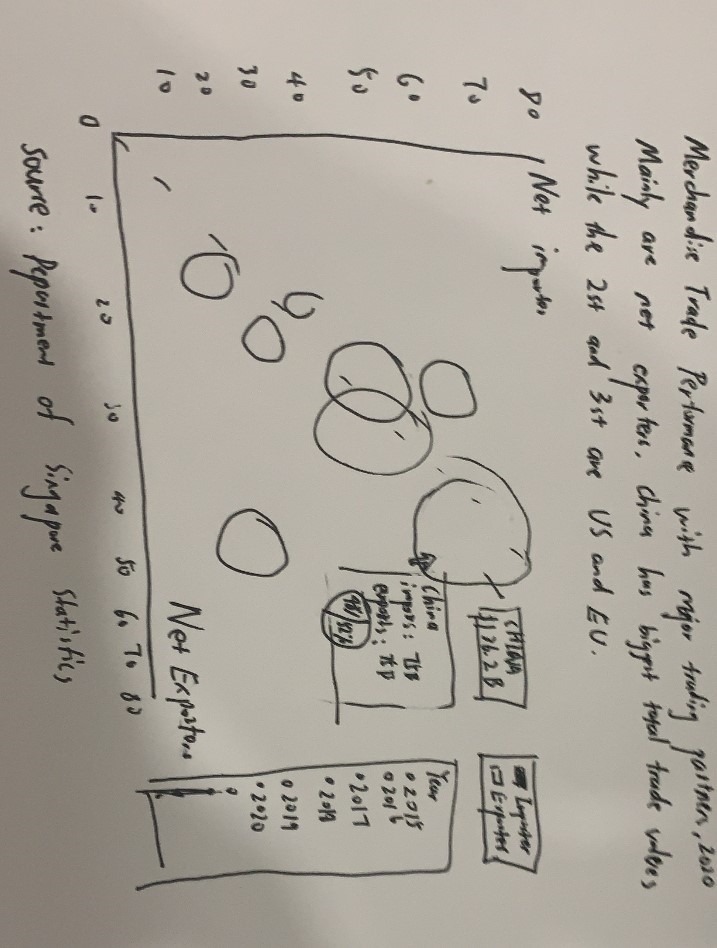 Merchandise Trade Performance with major trading partners, 2020
Mainly are net exporters. China has biggest total trade values
while the 2st and 3st are US and EU.
Net importer
80
70
60
50
40
30
20
10
0
10
20
30
40
50
60
70
80
Net Exporters
CHINA
$136.2 B
China
imports: 75B
exports: 75B
48% 52%
Importer
Exporter
Year
2015
2016
2017
2018
2019
2020
Source: Department of Singapore Statistics